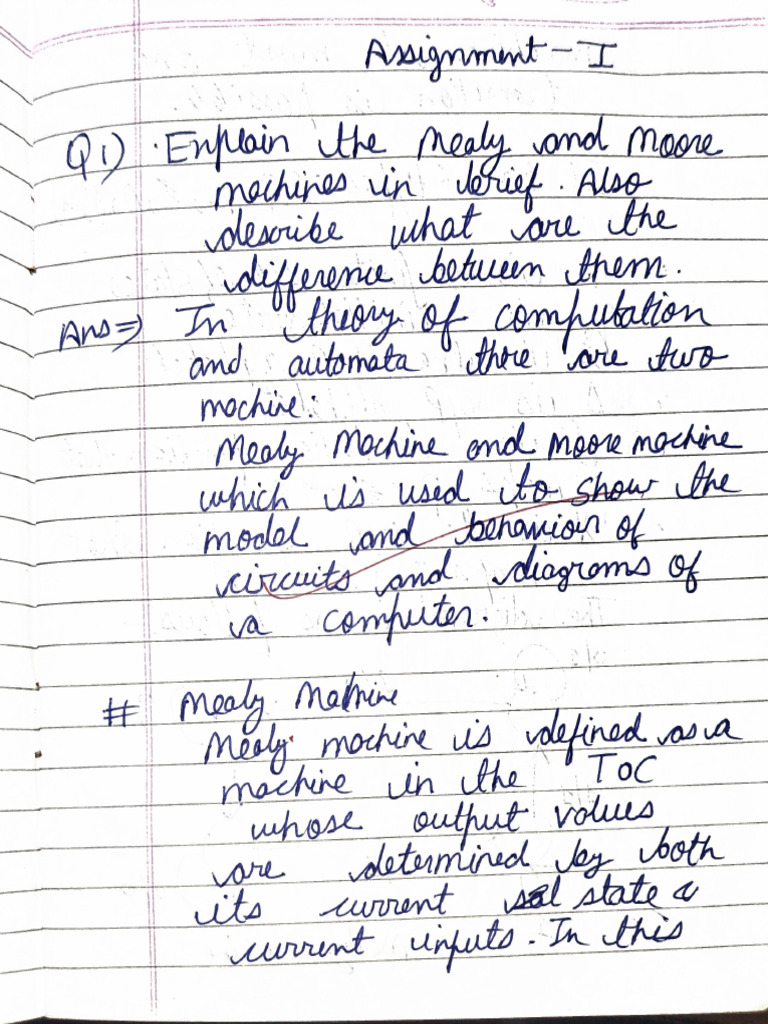 Assignment - I
Q1) Explain the Mealy and Moore
machines in brief. Also
describe what are the
difference between them.
Ans ⇒ In theory of computation
and automata there are two
machine:
Mealy Machine and Moore machine
which is used to show the
model and behaviour of
circuits and diagrams of
a computer.
# Mealy Machine
Mealy machine is defined as a
machine in the TOC
whose output values
are determined by both
its current state &
current inputs. In this